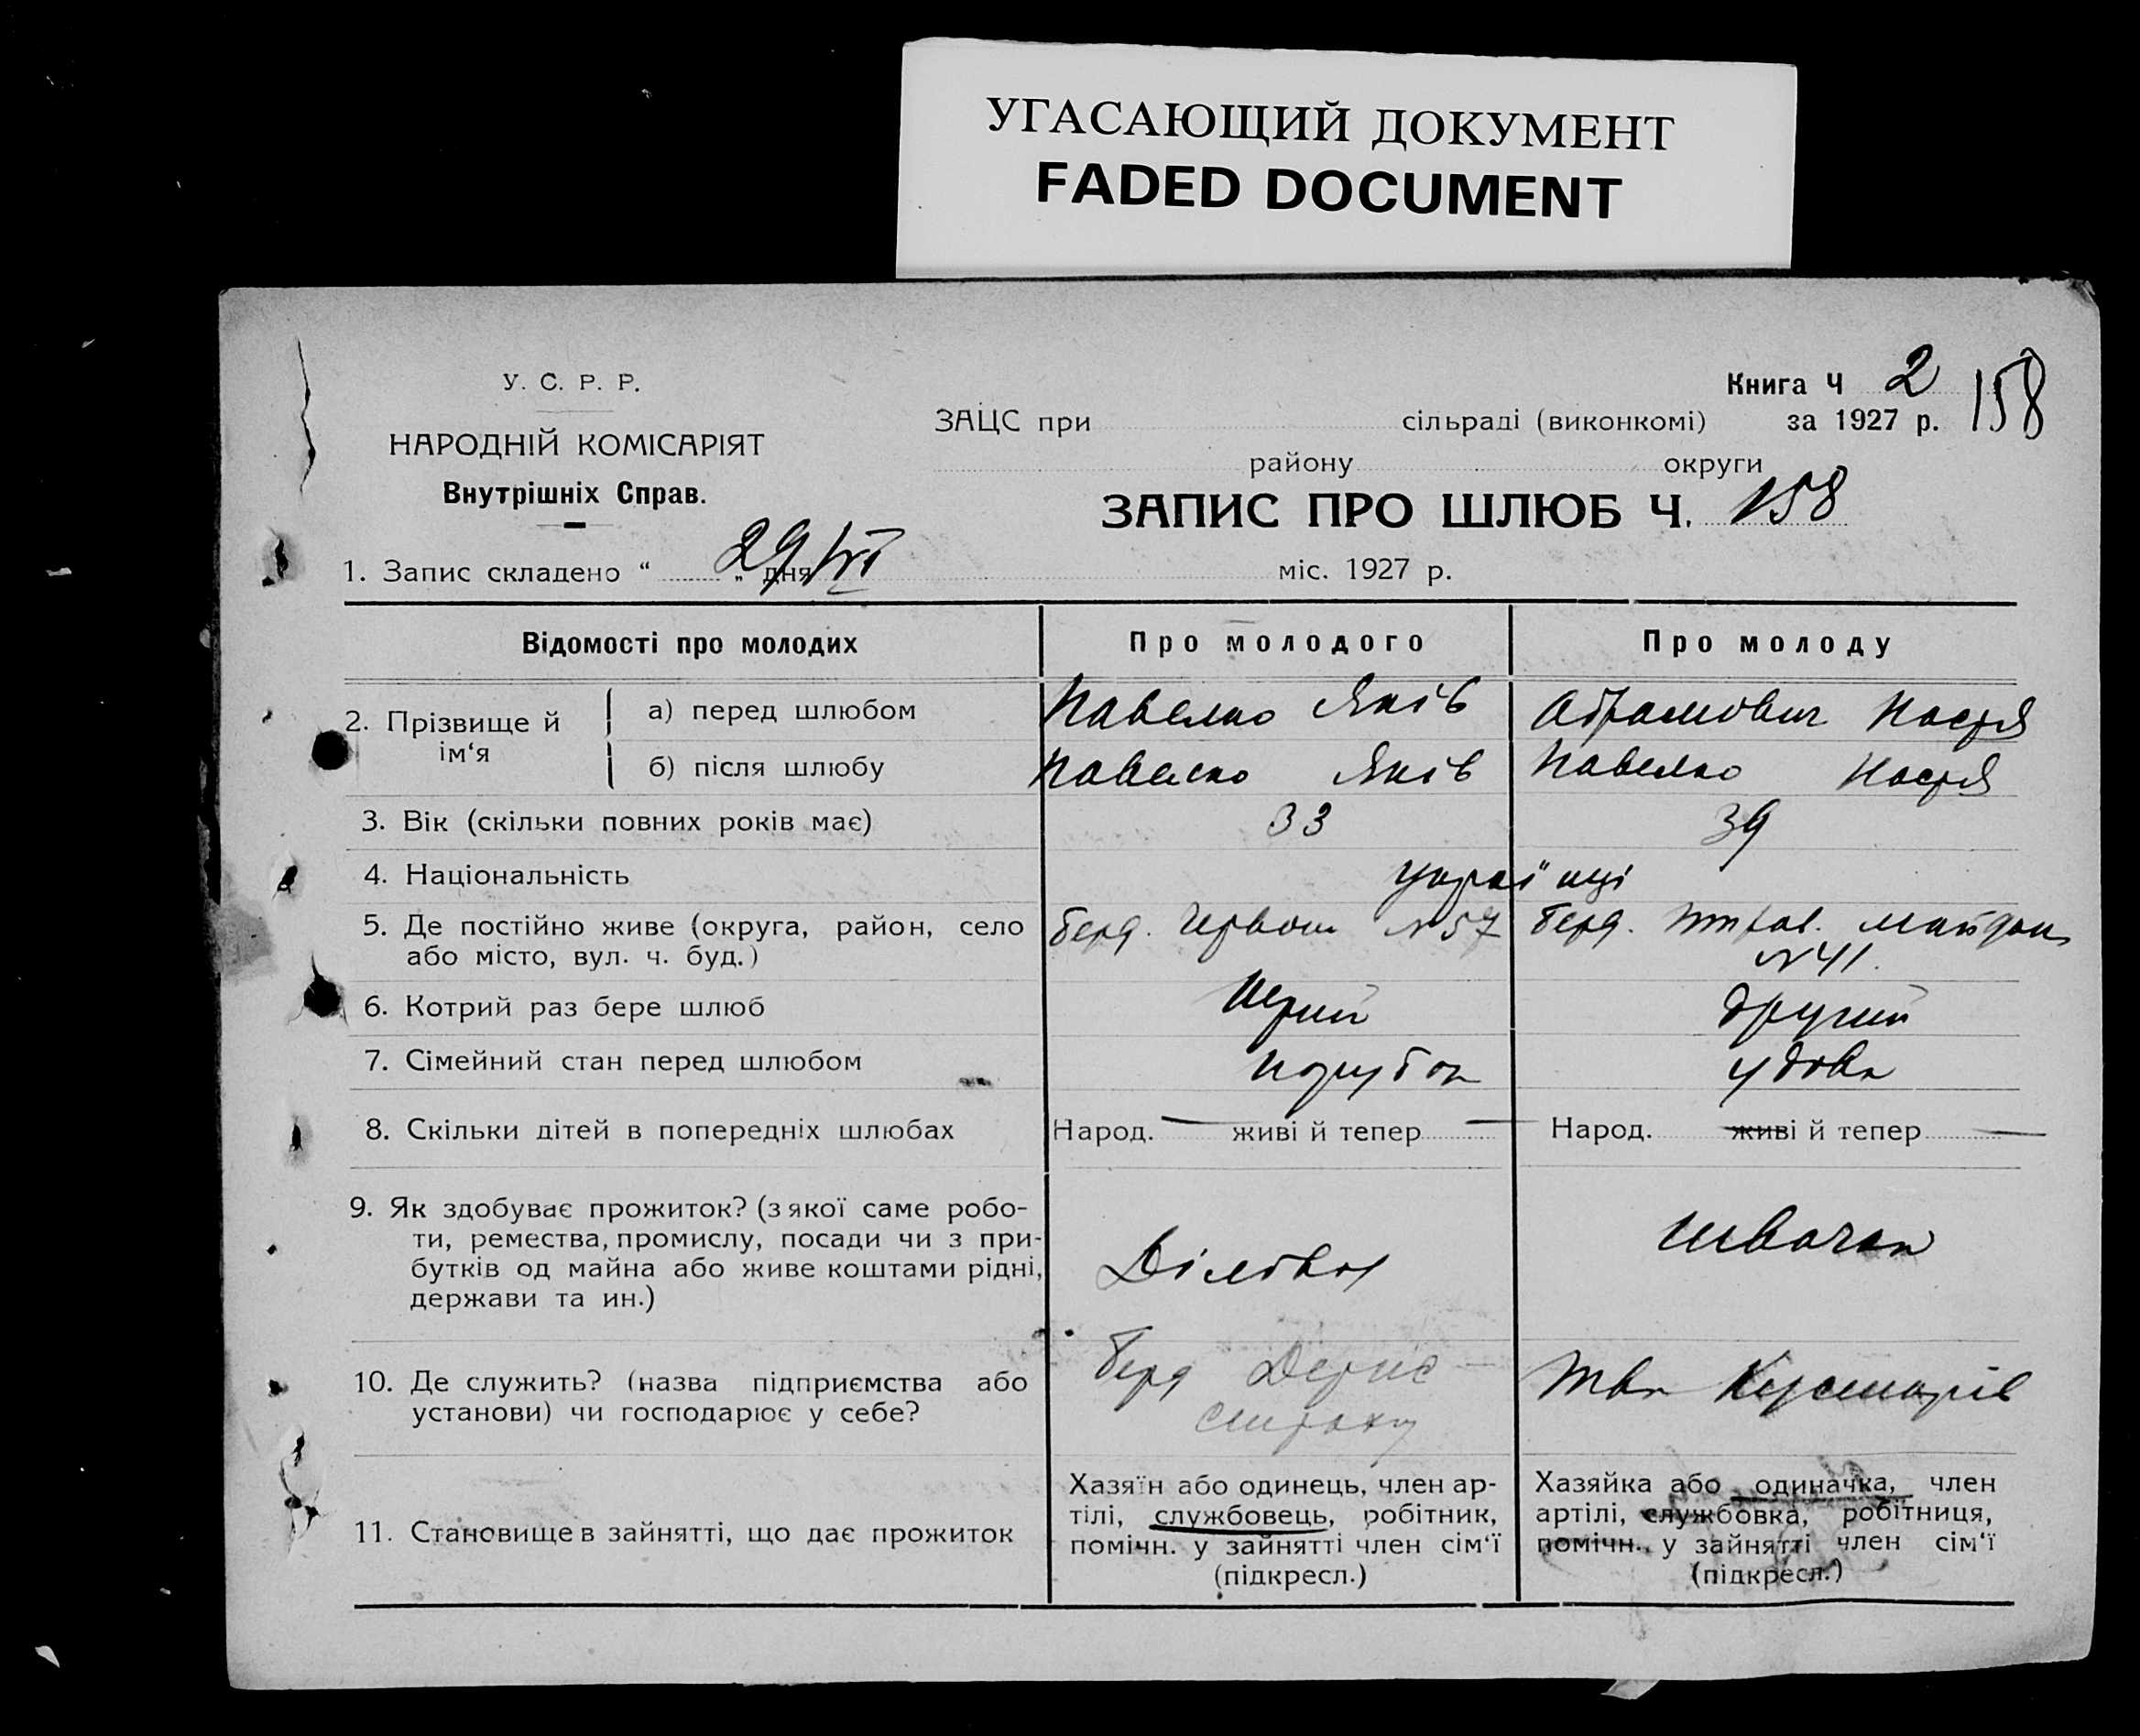 УГАСАЮЩИЙ ДОКУМЕНТ
FADED DOCUMENT
У. С. Р. Р.
НАРОДНІЙ КОМІСАРІЯТ
Внутрішніх Справ.
Книга Ч 2 158
ЗАЦС при сільраді (виконкомі) за 1927 р.
району округи
ЗАПИС ПРО ШЛЮБ Ч. 158
1. Запис складено “ 29 „ дня міс. 1927 р.
Відомості про молодих Про молодого Про молоду
2. Прізвище й ім‘я
а) перед шлюбом Павелко Яків Абрамович Настя
б) після шлюбу Павелко Яків Павелко Настя
3. Вік (скільки повних років має) 33 39
4. Національність українці
5. Де постійно живе (округа, район, село Берд. Червон. №57 Берд. майдан
або місто, вул. ч. буд.) №41.
6. Котрий раз бере шлюб Перший другий
7. Сімейний стан перед шлюбом парубок удова
8. Скільки дітей в попередніх шлюбах Народ. — живі й тепер — Народ. живі й тепер —
9. Як здобуває прожиток? (з якої саме робо-
ти, ремества, промислу, посади чи з при-
бутків од майна або живе коштами рідні,
держави та ин.)
Діловод швачка
10. Де служить? (назва підприємства або
установи) чи господарює у себе?
Берд Держ-
страху
Кустарів
11. Становище в зайнятті, що дає прожиток
Хазяїн або одинець, член ар-
тілі, службовець, робітник,
помічн. у зайнятті член сім‘ї
(підкресл.)
Хазяйка або одиначка, член
артілі, службовка, робітниця,
помічн., у зайнятті член сім‘ї
(підкресл.)